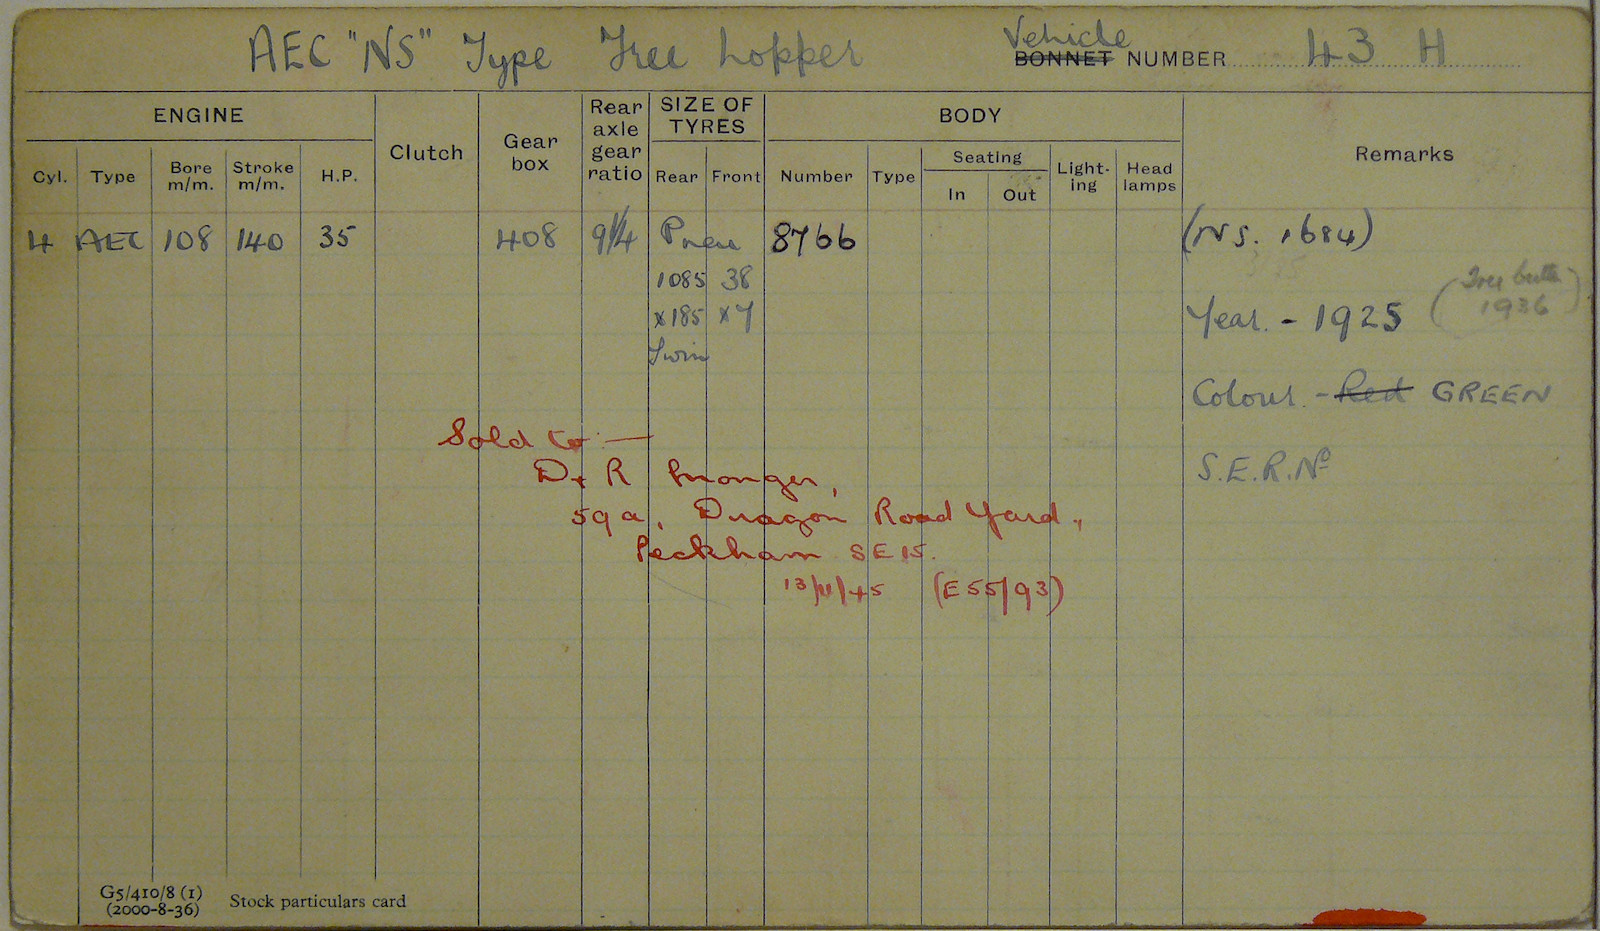 AEC "NS" Type Tree Lopper
Vehicle
BONNET NUMBER 43 H
ENGINE
Clutch
Gear box
Rear axle gear ratio
SIZE OF TYRES
BODY
Remarks
Cyl. Type Bore m/m. Stroke m/m. H.P.
Rear Front
Number Type
Seating
In Out
Light-ing
Head lamps
4 AEC 108 140 35 408 9¼ Pneu 8766 (NS. 1684)
1085 38
x185 x7
Twin
Year. - 1925
1936
Colour. - Red GREEN
S.E.R.Nº
Sold to —
D & R
59a, Dragon Road Yard,
Peckham SE15.
13/11/45 (E55/93)
G5/410/8 (1)
(2000-8-36)
Stock particulars card